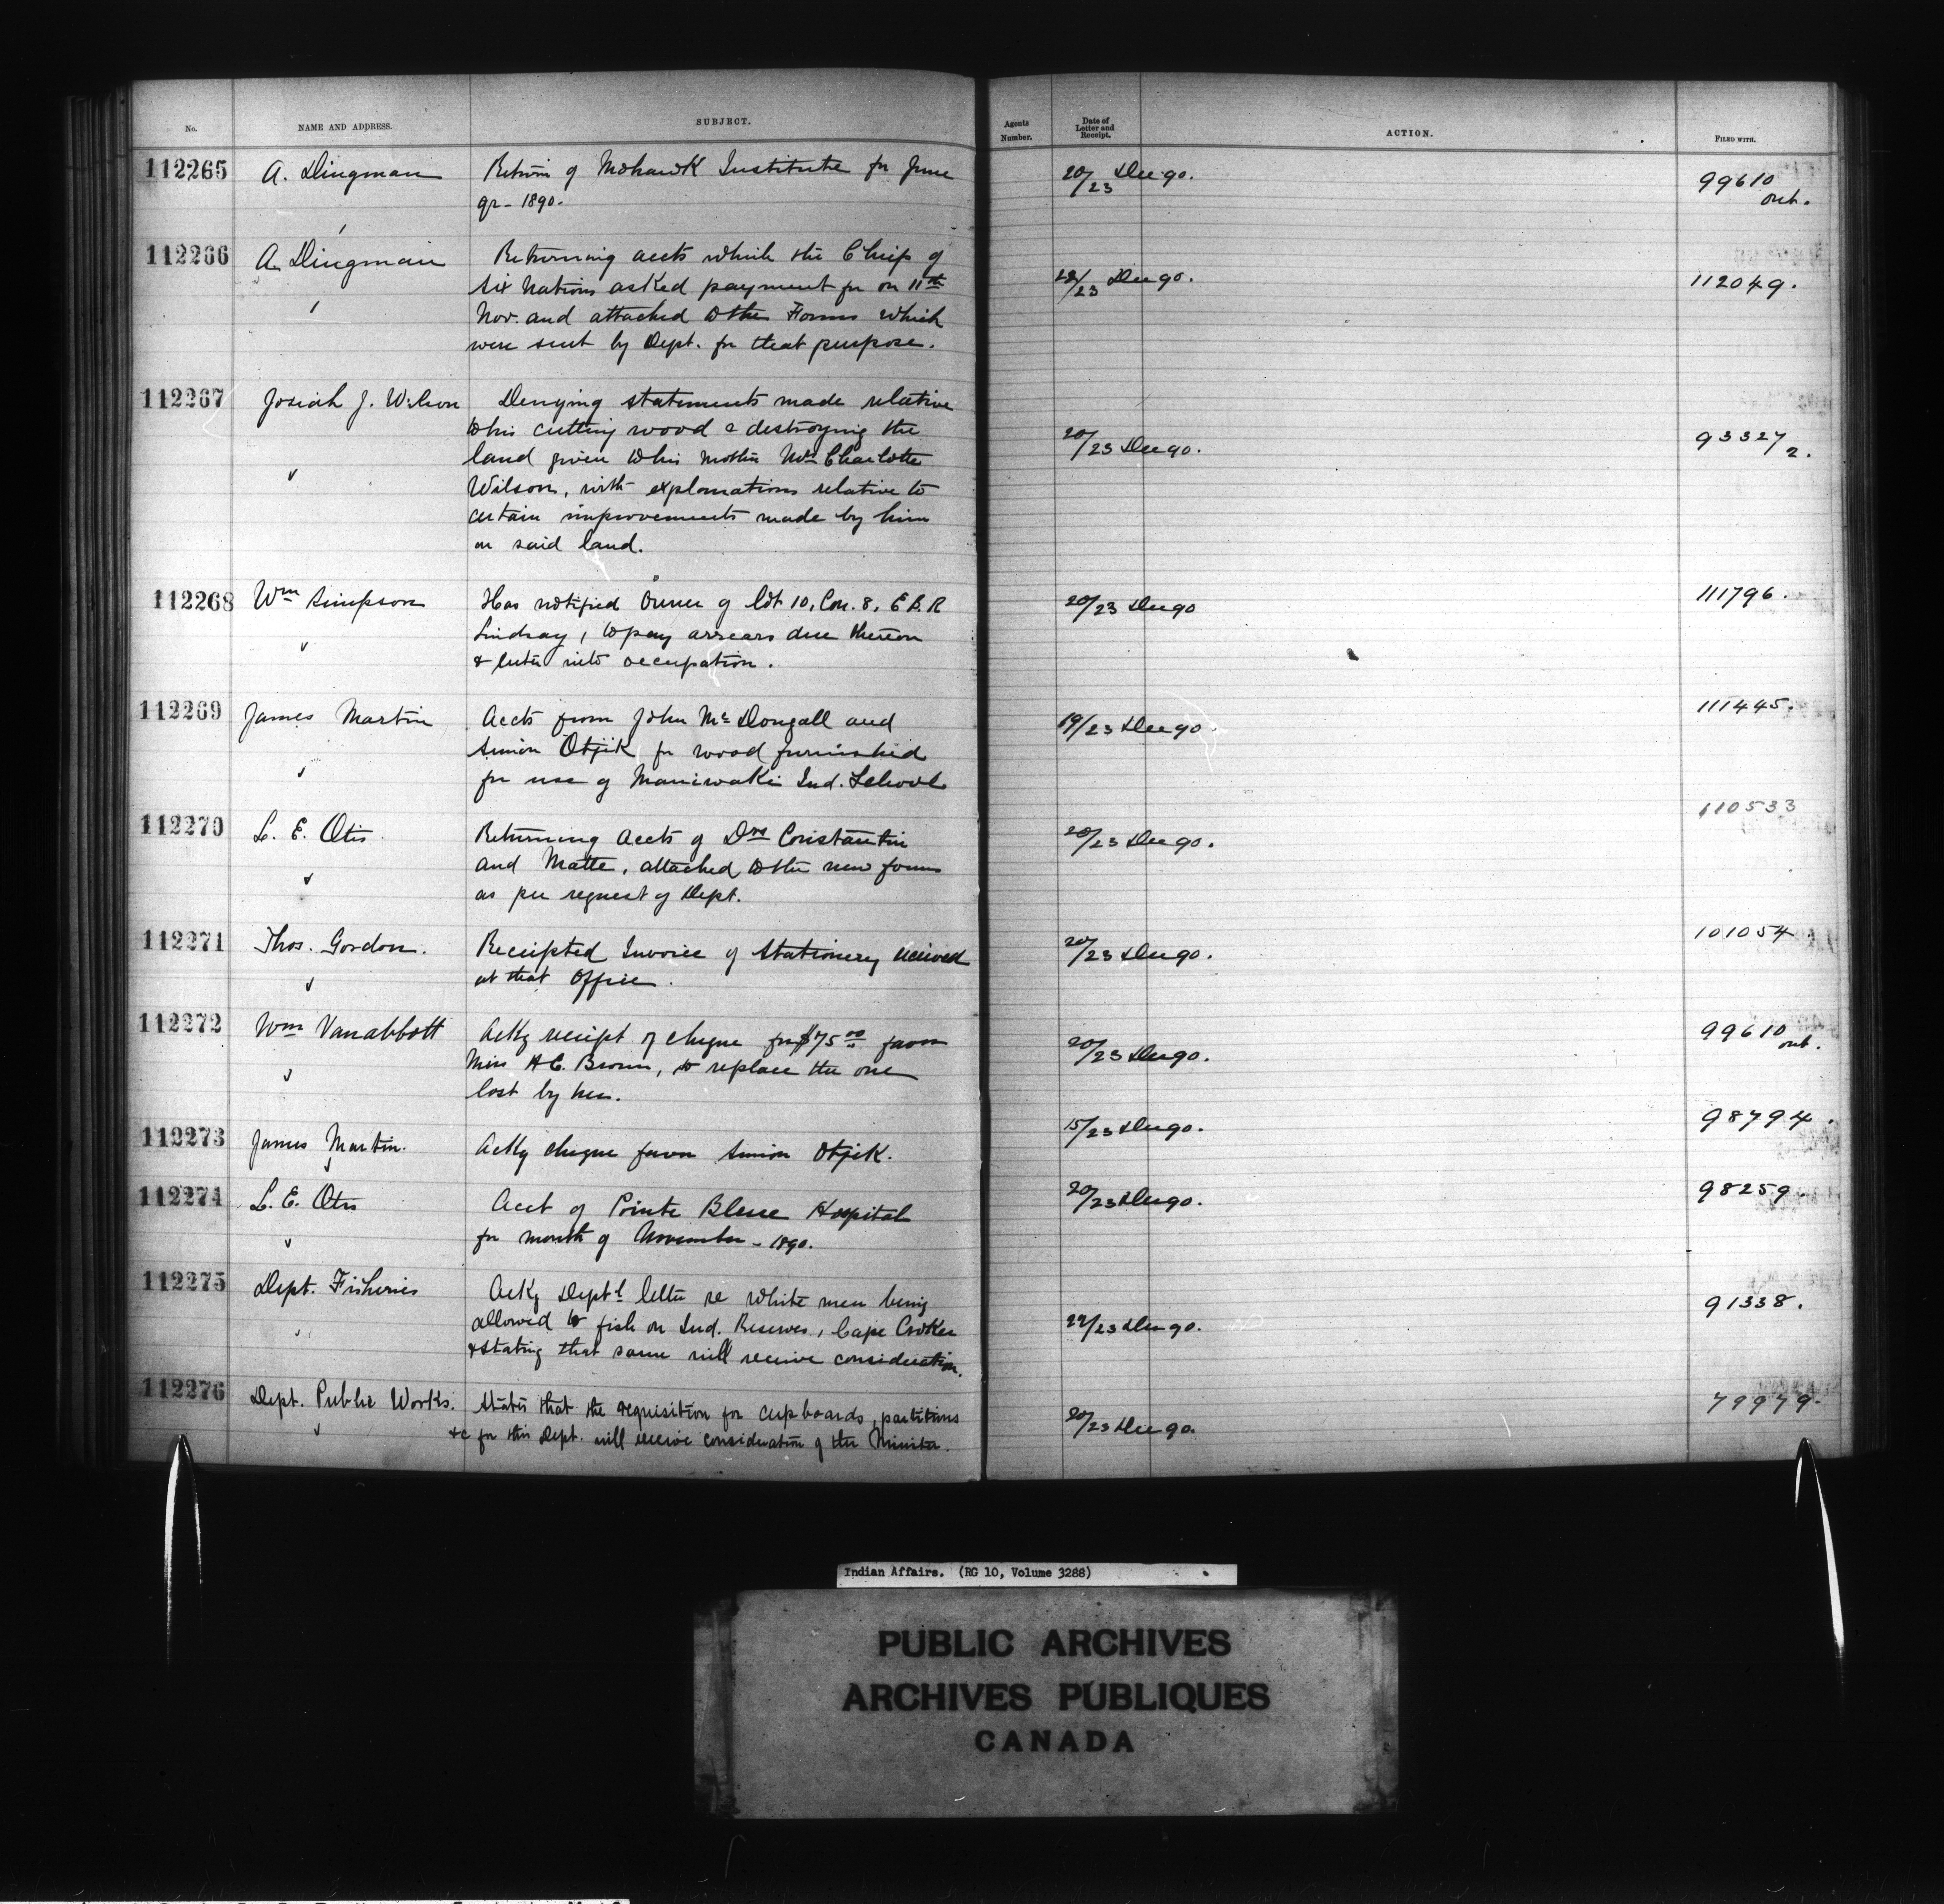 No. NAME AND ADDRESS. SUBJECT. Agents Number. Date of Letter and Receipt. ACTION. FILED WITH.
112265 A. Dingman Return of Mohawk Institute for June 20/23 Dec 90. 99610
qr - 1890. out.
112266 A. Dingman Returning accts which the Chiefs of
Six Nations asked payment for on 11th 22/23 Dec 90. 112049.
Nov. and attached to the Forms which
were sent by Dept. for that purpose.
112267 Josiah J. Wilson Denying statements made relative
to his cutting wood & destroying the 20/23 Dec 90. 93327/2.
land given to his mother Mrs Charlotte
Wilson, with explanations relative to
certain improvements made by him
on said land.
112268 Wm Simpson Has notified Owner of lot 10, Con. 8, E.B.R 20/23 Dec 90 111796.
Lindsay, to pay arrears due thereon
& enter into occupation.
112269 James Martin Accts from John McDougall and 19/23 Dec 90 111445.
Simon Otjik for wood furnished
for use of Maniwaki Ind. School
112270 L. E. Otis Returning Accts of Drs Constantin 20/23 Dec 90. 110533
and Matte, attached to the new forms
as per request of Dept.
112271 Thos. Gordon. Receipted Invoice of Stationery received 20/23 Dec 90. 101054
at that Office.
112272 Wm Vanabbott Ackg receipt of cheque for $75.00 favor 20/23 Dec 90. 99610
Miss A.C. Brown, to replace the one out.
lost by her.
112273 James Martin. Ackg cheque favor Simon Otjik. 15/23 Dec 90. 98794.
112274 L. E. Otis Acct of Pointe Bleue Hospital 20/23 Dec 90. 98259.
for month of November - 1890.
112275 Dept. Fisheries Ackg Dept'l letter re white men being 91338.
allowed to fish on Ind. Reserves, Cape Croker 22/23 Dec 90.
& stating that same will receive consideration.
112276 Dept. Public Works. States that the requisition for cupboards, partitions 20/23 Dec 90. 79979.
&c for this Dept. will receive consideration of the Minister.
Indian Affairs. (RG 10, Volume 3288)
PUBLIC ARCHIVES
ARCHIVES PUBLIQUES
CANADA